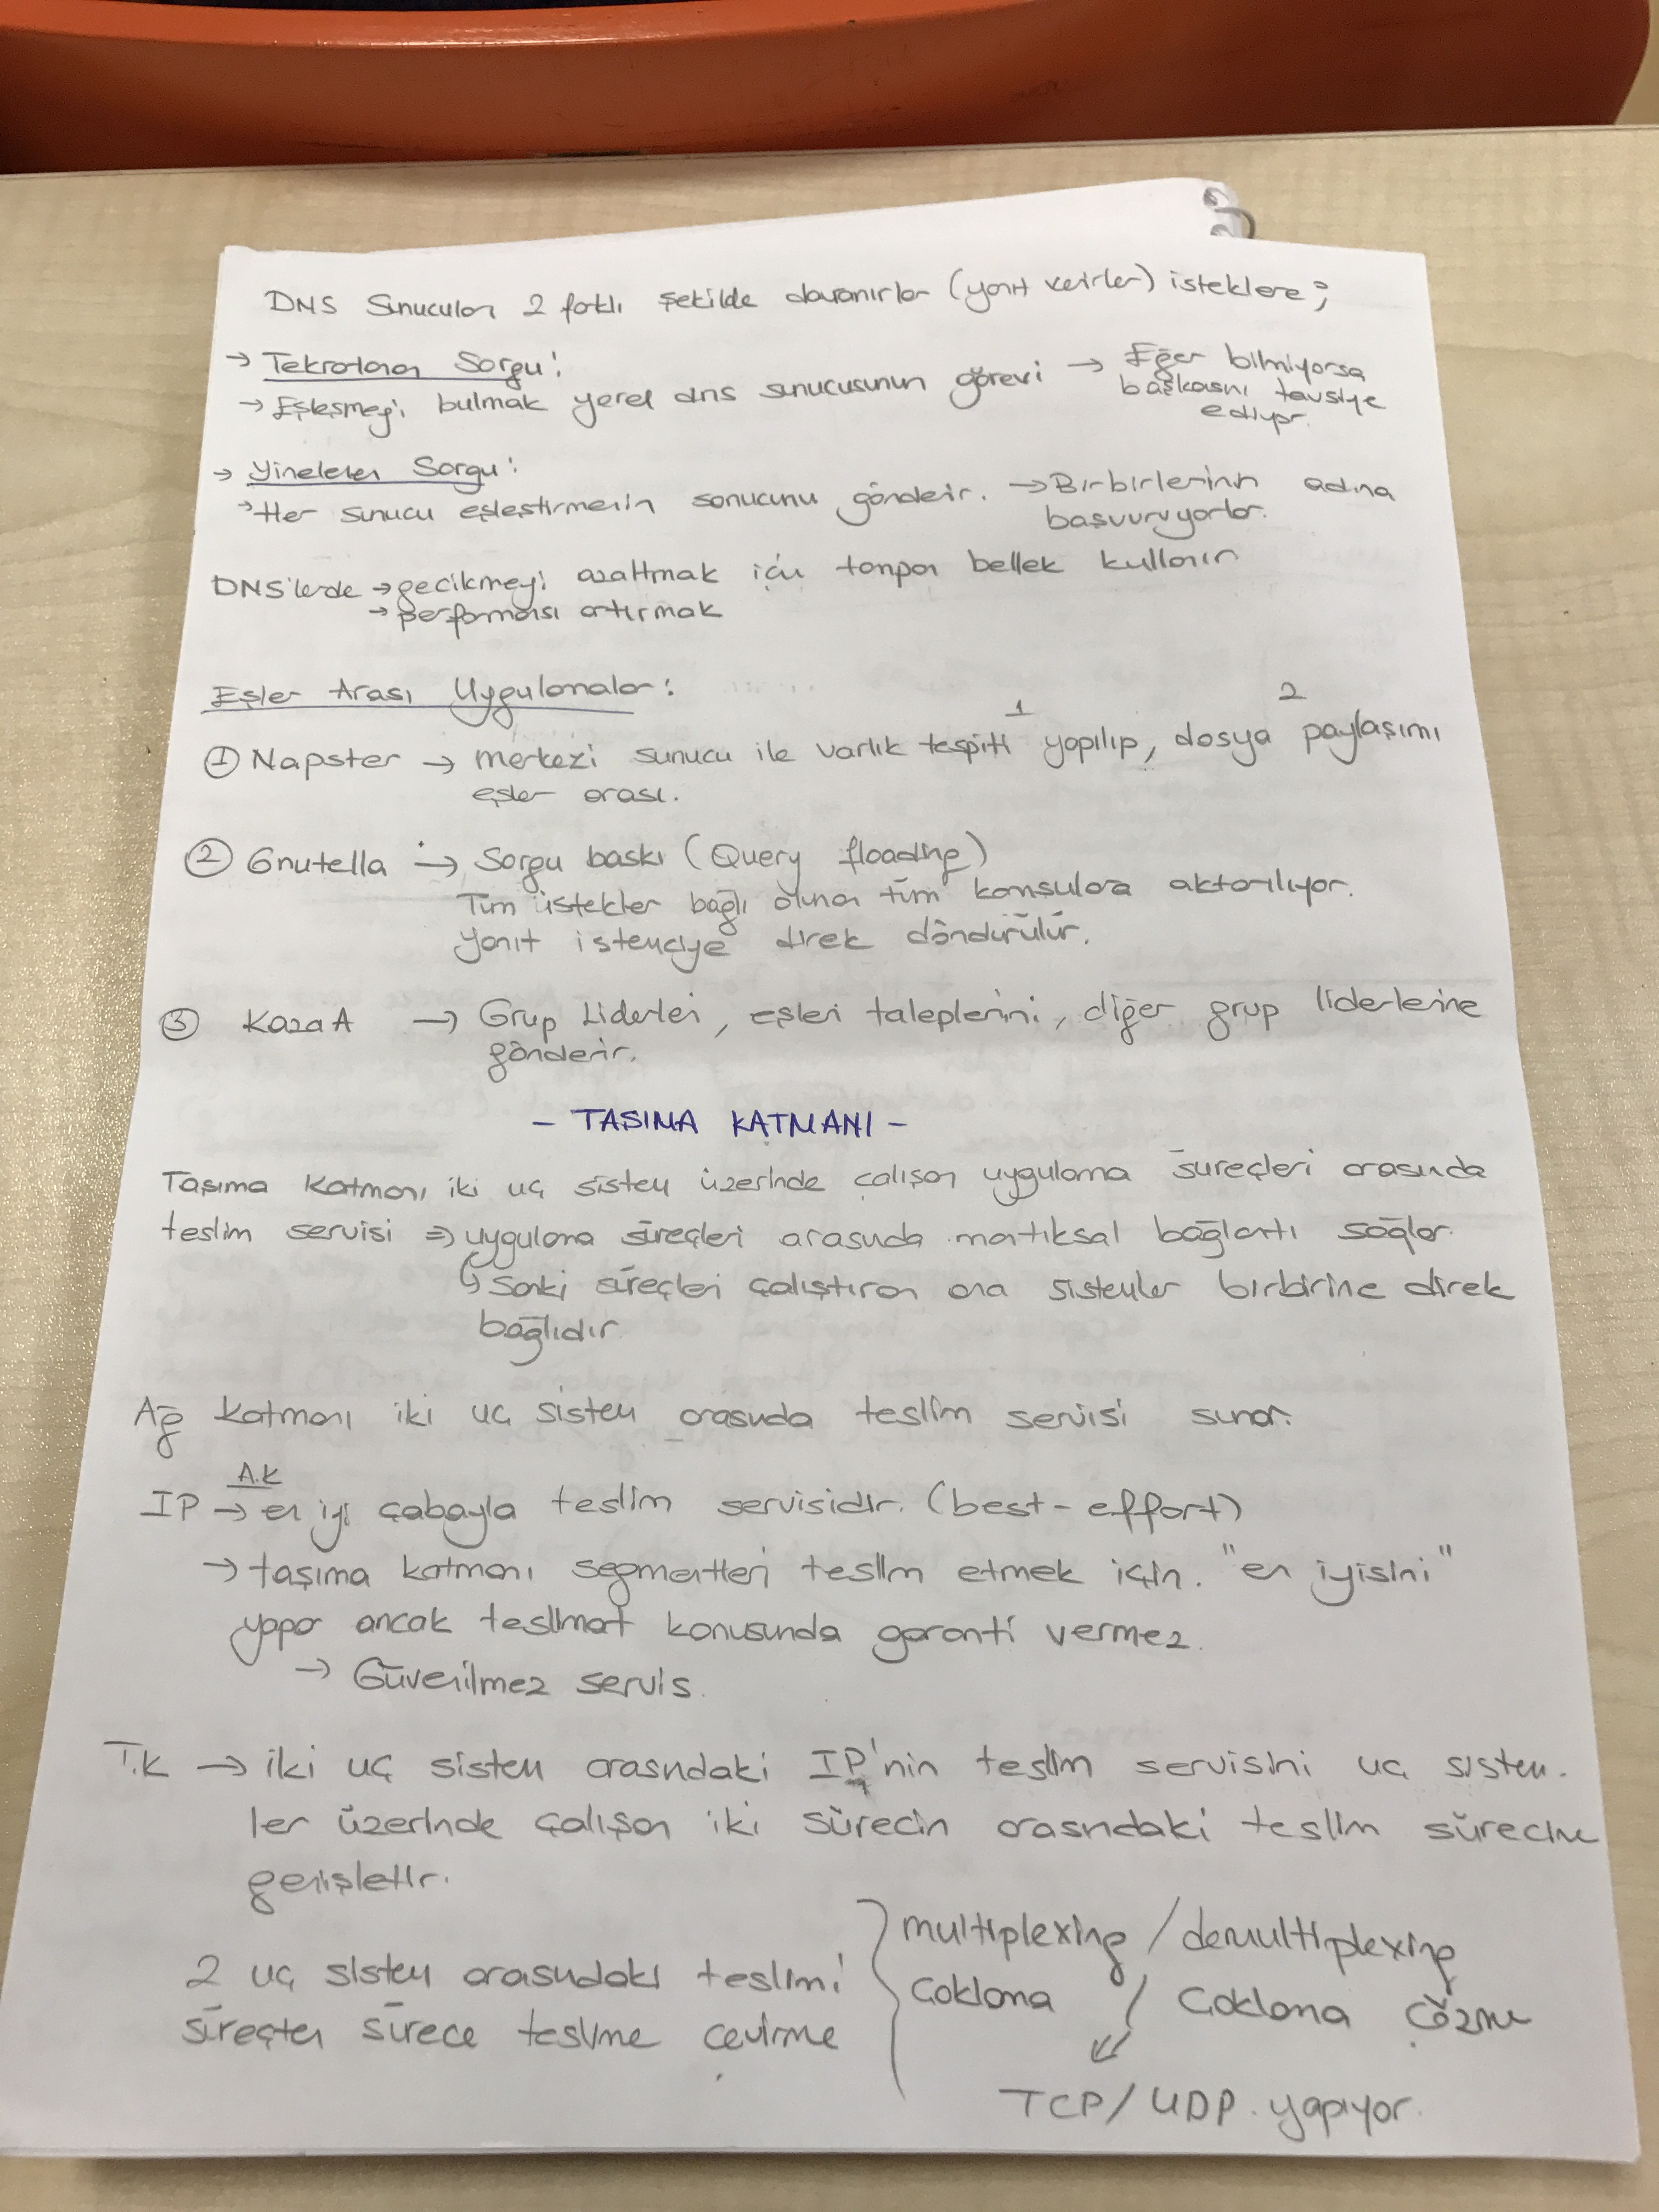 DNS Sunucuları 2 farklı şekilde davranırlar (yanıt verirler) isteklere;
→ Tekrarlanan Sorgu:
→ Eşleşmeyi bulmak yerel dns sunucusunun görevi → Eğer bilmiyorsa
başkasını tavsiye
ediyor.
→ Yinelenen Sorgu:
→ Her sunucu eşleştirmenin sonucunu gönderir. → Birbirlerinin adına
başvuruyorlar.
DNS'lerde → gecikmeyi azaltmak için tampon bellek kullanır
→ performansı artırmak
Eşler Arası Uygulamalar:
1 2
① Napster → merkezi sunucu ile varlık tespiti yapılıp, dosya paylaşımı
eşler arası.
② Gnutella → Sorgu baskı (Query floading)
Tüm istekler bağlı olunan tüm komşulara aktarılıyor.
Yanıt istemciye direk döndürülür.
③ KazaA → Grup Liderleri, eşleri taleplerini, diğer grup liderlerine
gönderir.
- TASIMA KATMANI -
Taşıma Katmanı iki uç sistem üzerinde çalışan uygulama süreçleri arasında
teslim servisi ⇒ uygulama süreçleri arasında mantıksal bağlantı sağlar.
↳ Sanki süreçleri çalıştıran ana sistemler birbirine direk
bağlıdır
Ağ Katmanı iki uç sistem arasında teslim servisi sunar.
A.K
IP → en iyi çabayla teslim servisidir. (best-effort)
→ taşıma katmanı segmentleri teslim etmek için. "en iyisini"
yapar ancak teslimat konusunda garanti vermez.
→ Güvenilmez servis.
T.K → iki uç sistem arasındaki IP'nin teslim servisini uç sistem-
ler üzerinde çalışan iki sürecin arasındaki teslim sürecine
genişletir.
2 uç sistem arasındaki teslimi
süreçten sürece teslime çevirme
multiplexing / demultiplexing
Çoklama / Çoklama Çözme
⇙
TCP/UDP. yapıyor.